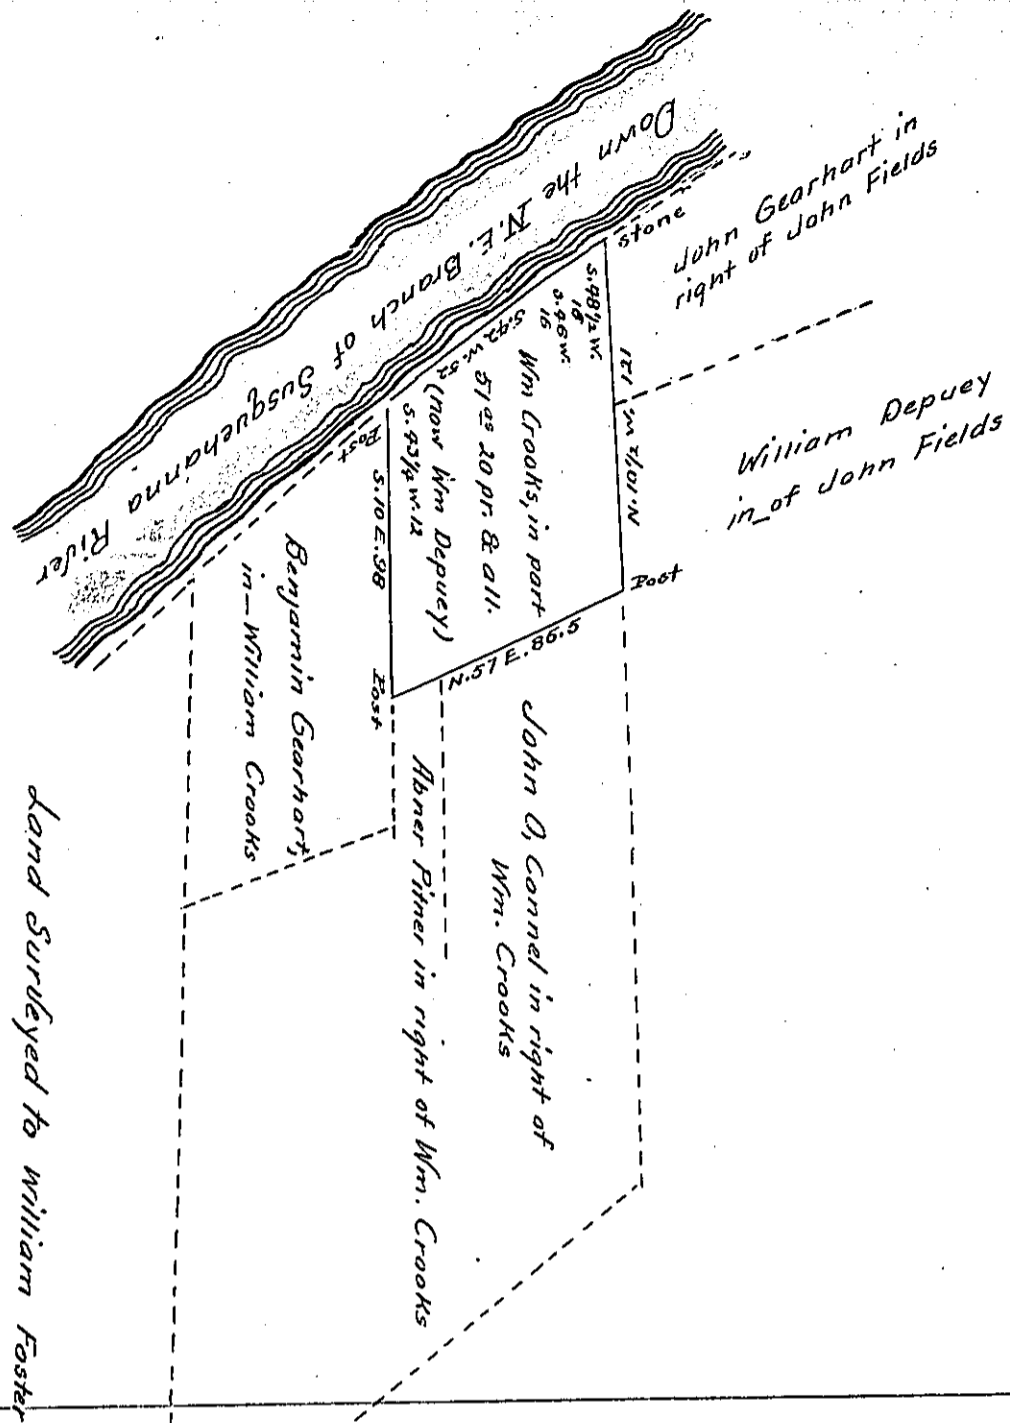 Down the N.E. Branch of Susquehanna River
John Gearhart in
right of John Fields
stone
William Depuey
in_of John Fields
N.10½ W 121
S.48½ W.
18
S.46 W.
16
S.42 W. 52
S.43¼ W. 12
Wm Crooks, in part
51 as 20 pr. & all.
(now Wm Depuey)
Post
S.10 E.98
Post
N.57 E. 86.5
Post
Benjamin Gearhart,
in—William Crooks
John O, Connel in right of
Wm. Crooks
Abner Pitner in right of Wm. Crooks
Land Surveyed to William Foster